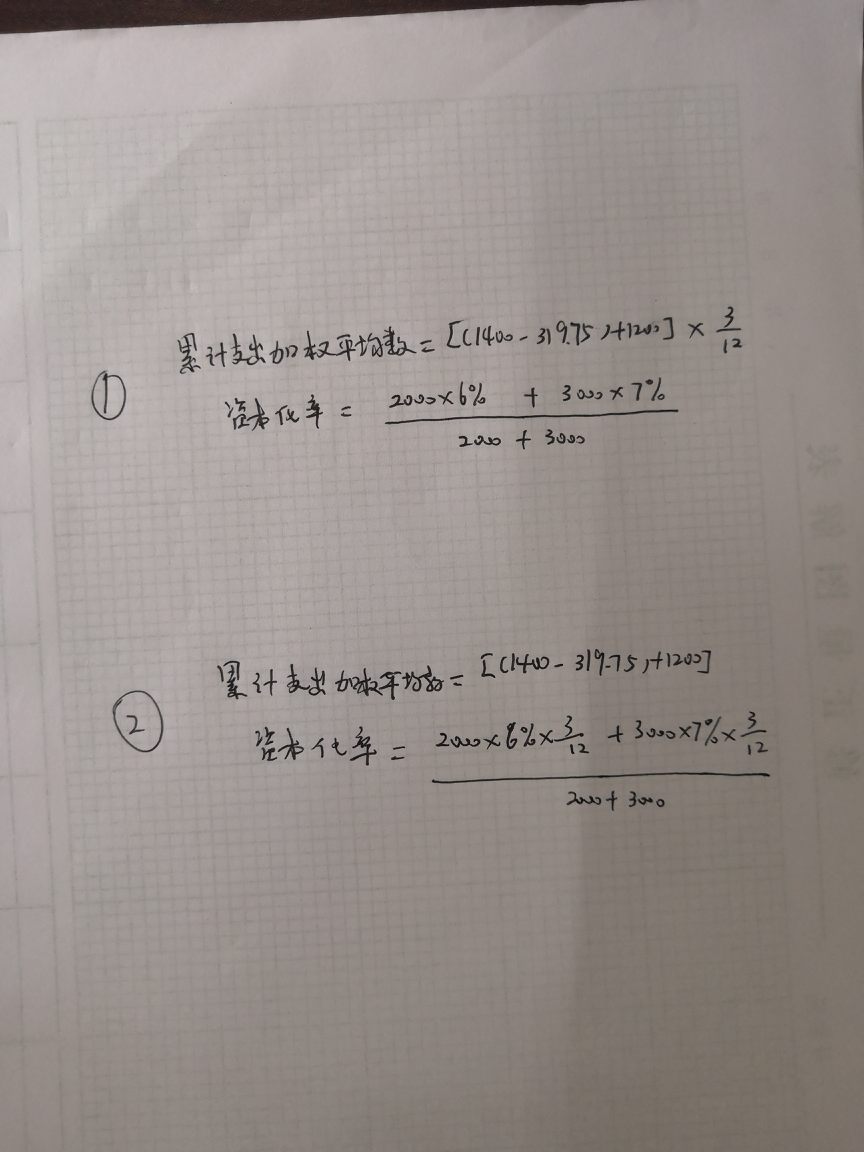 ①
累计支出加权平均数 = [(1400 - 319.75) + 1200] × 3/12
资本化率 = (2000×6% + 3000×7%) / (2000 + 3000)
②
累计支出加权平均数 = [(1400 - 319.75) + 1200]
资本化率 = (2000×6%×3/12 + 3000×7%×3/12) / (2000 + 3000)